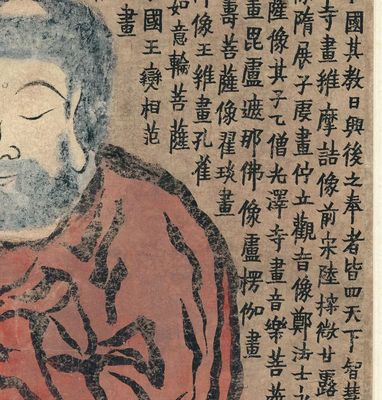 中國其教日興後之奉者皆四天下智慧
寺畫維摩詰像前宋陸探微甘露
隋展子虔畫佇立觀音像鄭法士
薩像其子乙僧光澤寺畫音樂菩
毘盧遮那佛像盧楞伽畫
壽菩薩像翟琰畫
像王維畫孔雀
如意輪菩薩
國王變相范
畫